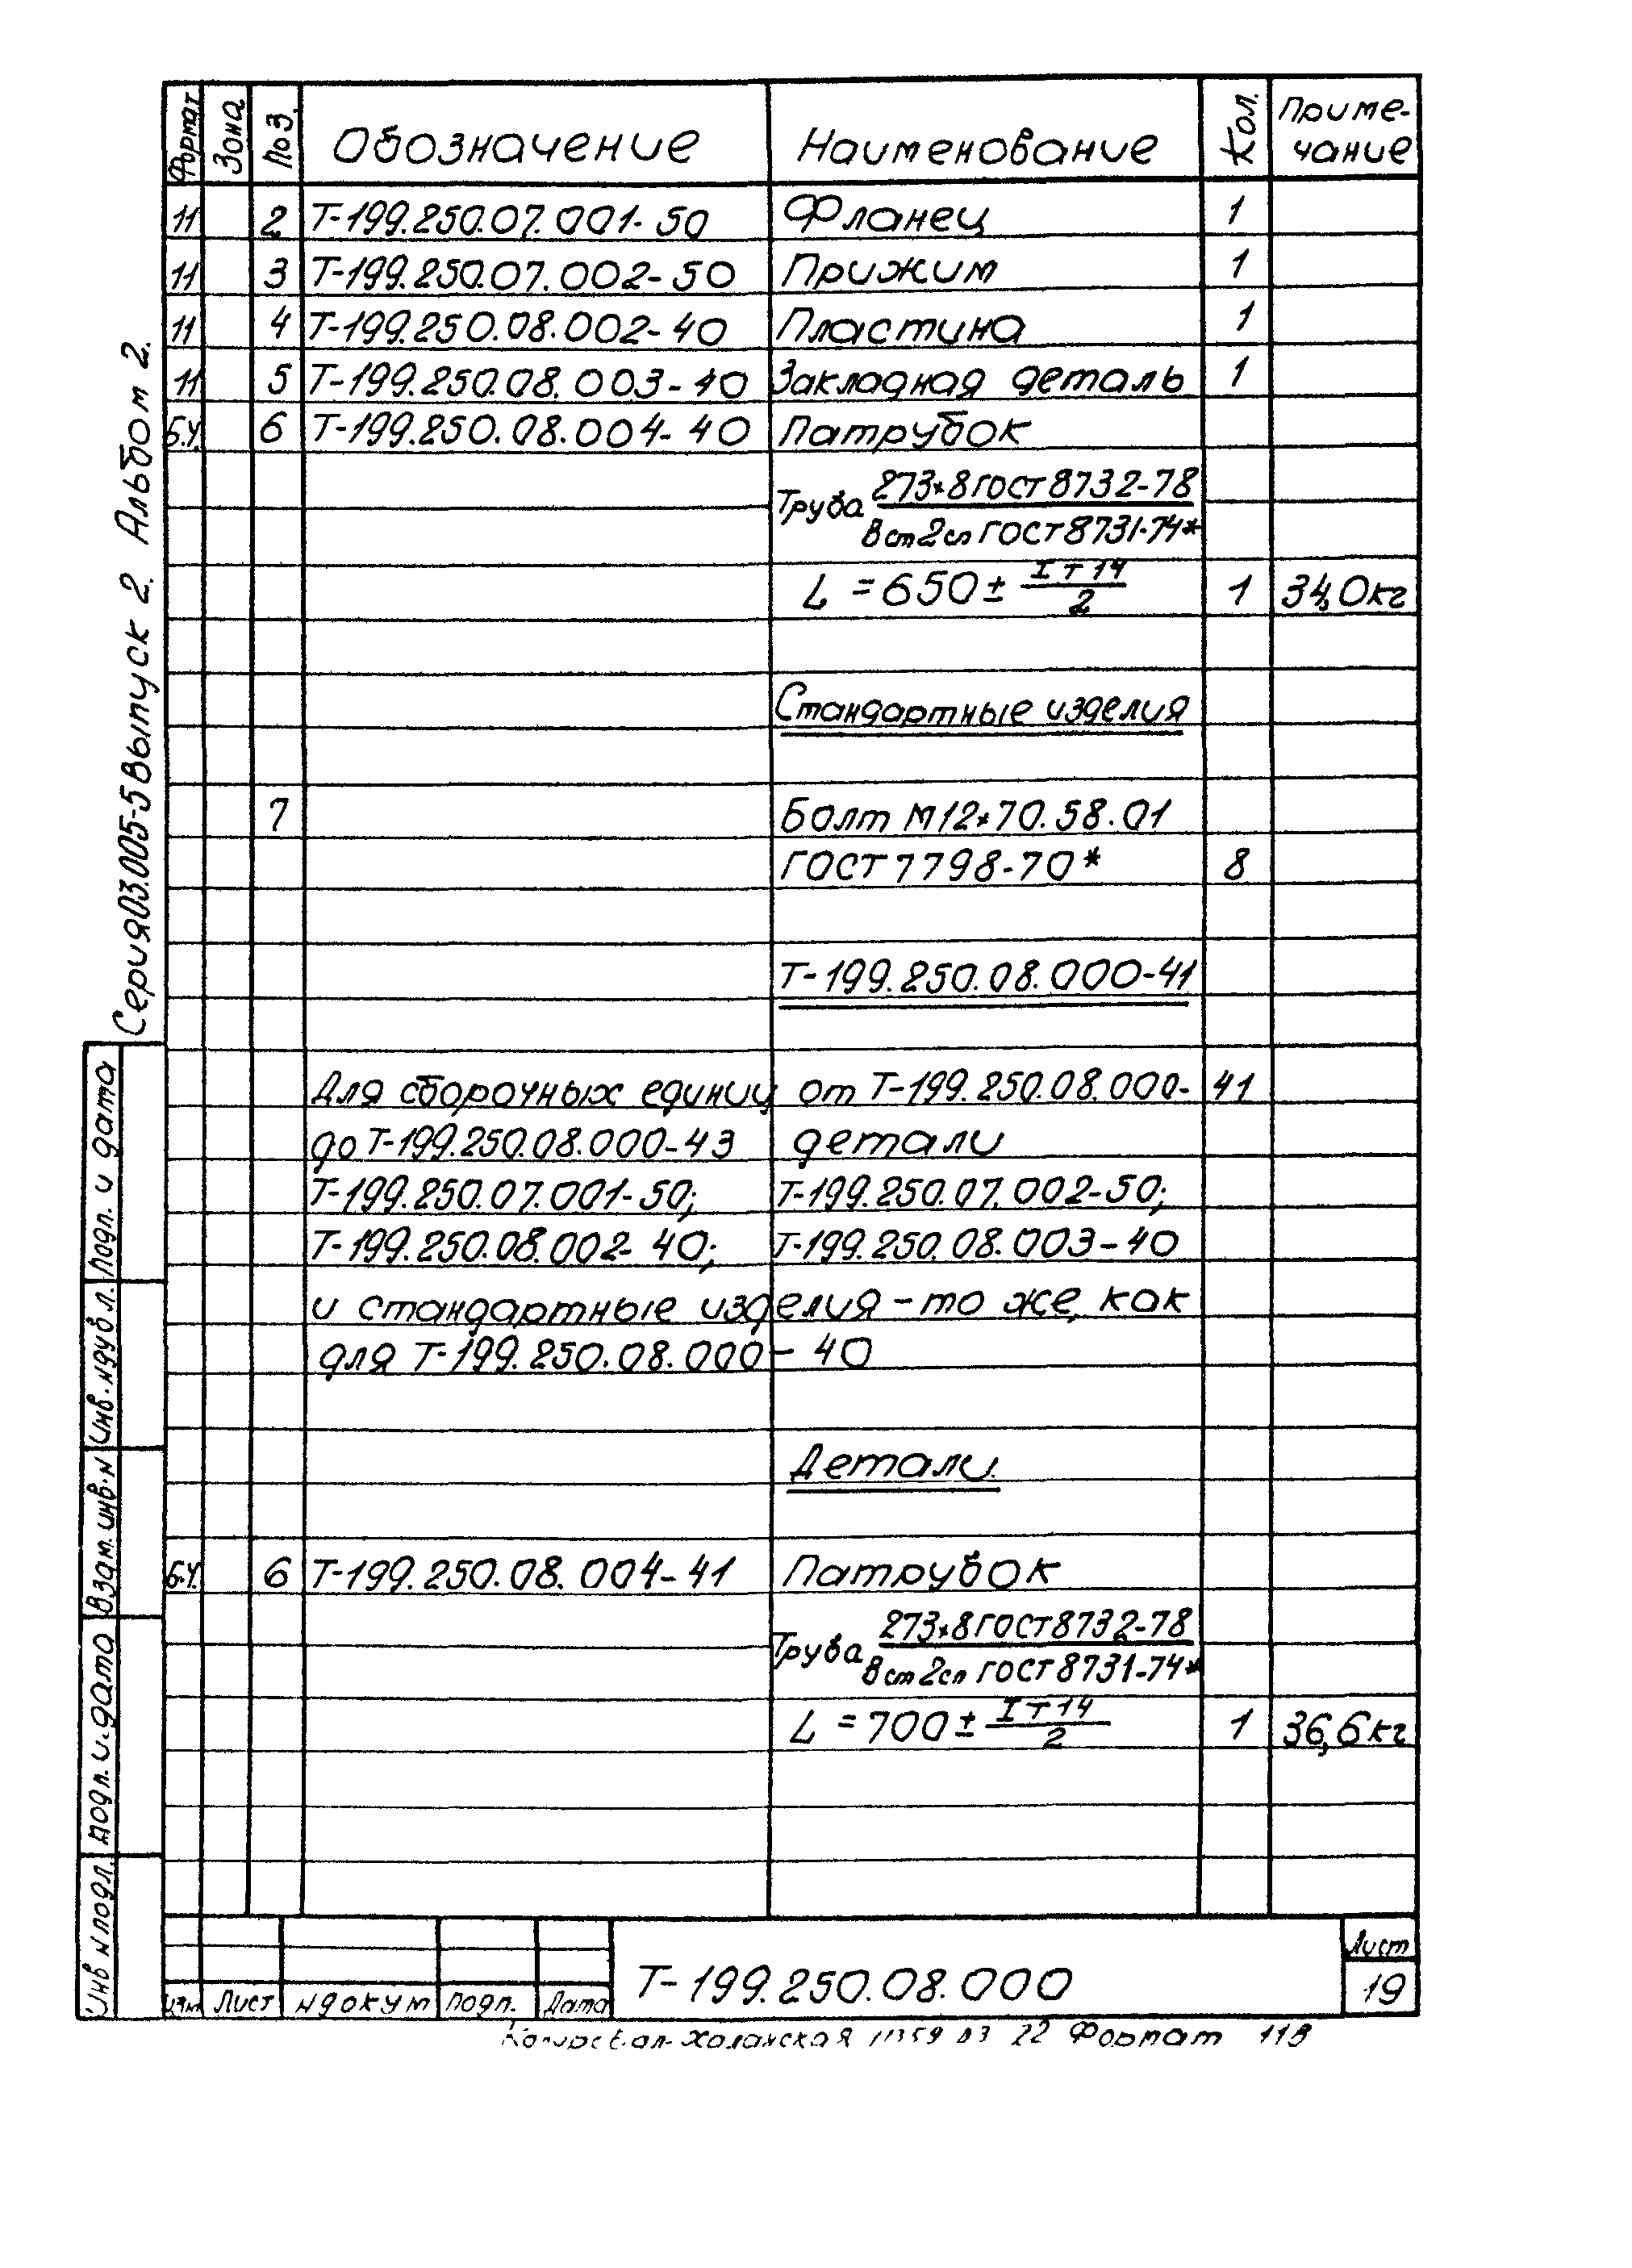 Формат Зона Поз. Обозначение Наименование Кол. Приме-
чание
11 2 Т-199.250.07.001-50 Фланец 1
11 3 Т-199.250.07.002-50 Прижим 1
11 4 Т-199.250.08.002-40 Пластина 1
11 5 Т-199.250.08.003-40 Закладная деталь 1
Б.Ч. 6 Т-199.250.08.004-40 Патрубок
Труба 273*8 ГОСТ 8732-78
В ст2сп ГОСТ 8731-74*
L = 650 ± IT14/2 1 34,0кг
Стандартные изделия
7 Болт М12*70.58.01
ГОСТ 7798-70* 8
Т-199.250.08.000-41
Для сборочных единиц от Т-199.250.08.000-41
до Т-199.250.08.000-43 детали
Т-199.250.07.001-50; Т-199.250.07.002-50;
Т-199.250.08.002-40; Т-199.250.08.003-40
и стандартные изделия-то же, как
для Т-199.250.08.000-40
Детали
Б.Ч. 6 Т-199.250.08.004-41 Патрубок
Труба 273*8 ГОСТ 8732-78
В ст2сп ГОСТ 8731-74*
L = 700 ± IT14/2 1 36,6кг
Серия 03.005-5 Выпуск 2. Альбом 2.
Подп. и дата
Инв.N дубл.
Взам.инв.N
Подп. и.дата
Инв N подл.
Изм Лист N докум Подп. Дата
Т-199.250.08.000
Лист
19
Формат 11В